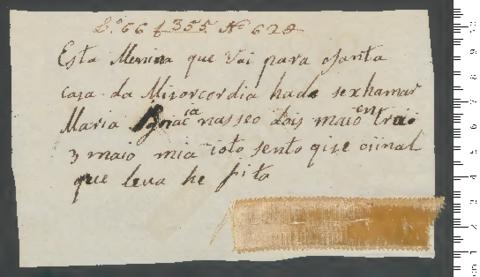 L.º 66 f 355 Nº 628
Esta Menina que Vai para aSanta
caza da Misorcordia hade sexhamar
Maria Ignacia nasseo dois maio entrai
3 maio mia ioto sento qise oiinal
que leva he fita